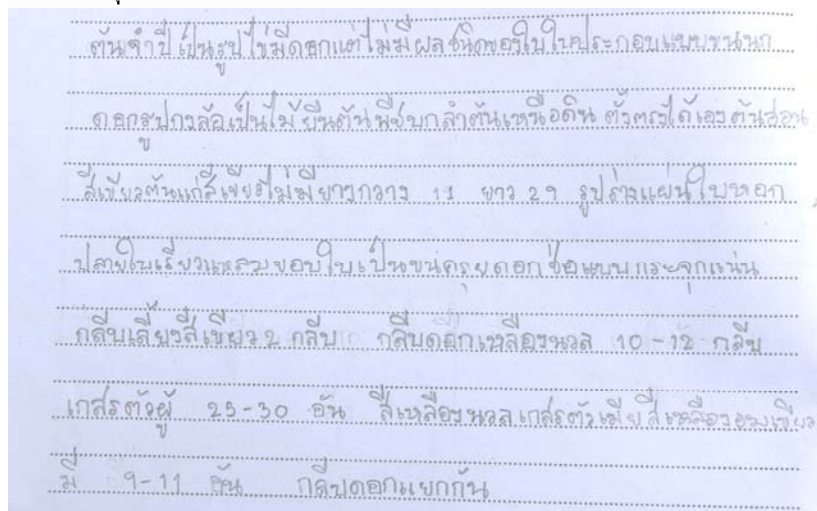 ต้นจำปี เป็นรูปไข่มีดอกแต่ไม่มีผลชนิดของใบใบประกอบแบบขนนก
ดอกรูปกงล้อเป็นไม้ยืนต้นพืชบกลำต้นเหนือดิน ตั้งตรงได้เองต้นอ่อน
สีเขียวต้นแก่สีเขียวไม่มียางกวาง 11 ยาว 29 รูปร่างแผ่นใบหอก
ปลายใบเรียวแหลมขอบใบเป็นขนครุยดอกช่อแบบกระจุกแน่น
กลีบเลี้ยงสีเขียว 2 กลีบ กลีบดอกเหลืองนวล 10-12 กลีบ
เกสรตัวผู้ 25-30 อัน สีเหลืองนวลเกสรตัวเมียสีเหลืองอมเขียว
มี 9-11 อัน กลีบดอกแยกกัน